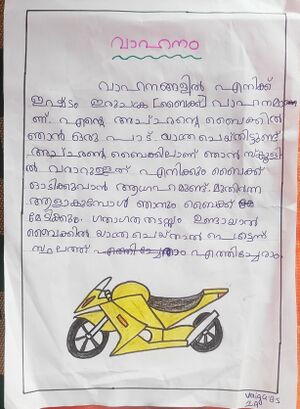 വാഹനം
വാഹനങ്ങളിൽ എനിക്ക്
ഇഷ്ടം ഇരുചക്ര [ബൈക്ക്] വാഹനമാ
ണ്. എന്റെ അച്ഛന്റെ ബൈക്കിൽ
ഞാൻ ഒരു പാട് യാത്ര ചെയ്തിട്ടുണ്ട്
അച്ഛന്റെ ബൈക്കിലാണ് ഞാൻ സ്കൂളി
ൽ വരാറുള്ളത് എനിക്കും ബൈക്ക്
ഓടിക്കുവാൻ ആഗ്രഹമുണ്ട്. മുതിർന്ന
ആളാകുമ്പോൾ ഞാനും ബൈക്ക്
മേടിക്കും. ഗതാഗത തടസ്സം ഉണ്ടായാൽ
ബൈക്കിൽ യാത്ര ചെയ്താൽ പെട്ടെന്ന്
സ്ഥലത്ത് എത്തിച്ചേരാം.
Vaiga BS